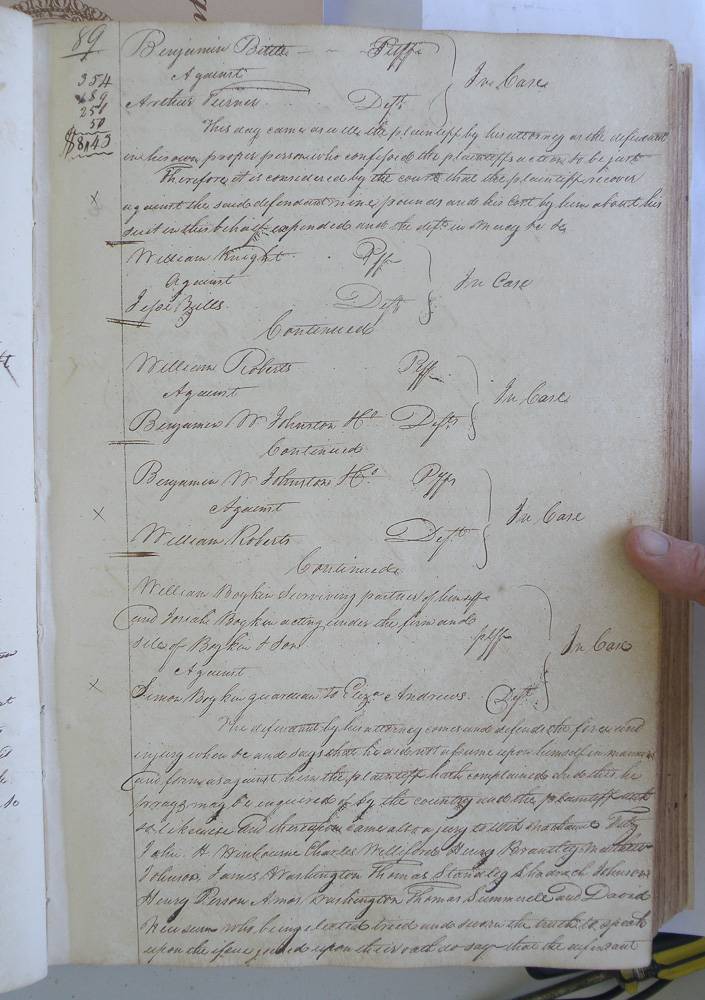 89
354
289
251
50
$8,45
Benjamin Bittle Pltff
Against
Arthur Turner. Deft
In Case
This day came as well the plaintiff by his attorney as the defendant
in his own proper person who confessed the plaintiffs action to be just
Therefore it is considered by the court that the plaintiff recover
against the said defendant nine pounds and his Cost by him about his
suit in this behalf expended and the deft in Mercy &c
William Knight. Pff
Against
Jesse Bells. Deft
In Case
Continued
William Roberts Plff
Against
Benjamin W Johnston &Co Defts
In Case
Continued
Benjamin W Johnston &Co Plffs
Against
William Roberts Deft
In Case
Continued
William Boykin Surviving partner of himself
and Josiah Boykin acting under the firm and
stile of Boykin & Son plff
Against
Simon Boykin guardian to Eliza Andrews. Deft
In Case
The defendant by his attorney comes and defends the force and
injury when &c and says that he did not assume upon himself in manner
and form as against him the plaintiff hath complained and of this he
prays may be enquired of by the country and the plaintiff doth
so likewise And thereupon came also a jury to wit
John. H. Winbourne Charles Williford Henry Brantley
Johnson, James Washington Thomas Standley Shadrach Johnson
Henry Person, Amos Washington Thomas Summrell and David
Newsum who being elected tried and sworn the truth to speak
upon the issue joined upon their oath do say that the defendant